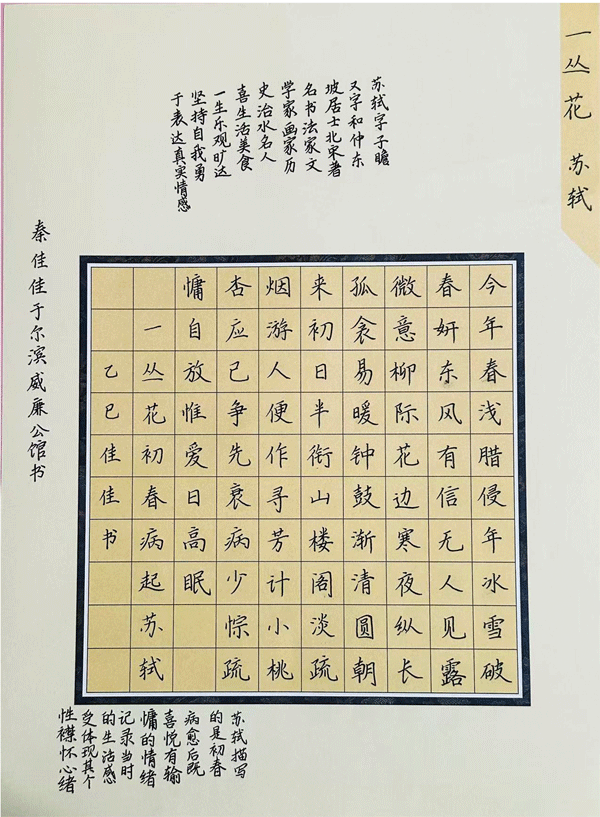 一丛花 苏轼
苏轼字子瞻
又字和仲东
坡居士北宋著
名书法家文
学家画家历
史治水名人
喜生活美食
一生乐观旷达
坚持自我勇
于表达真实情感
今年春浅腊侵年冰雪破
春妍东风有信无人见露
微意柳际花边寒夜纵长
孤衾易暖钟鼓渐清圆朝
来初日半衔山楼阁淡疏
烟游人便作寻芳计小桃
杏应已争先衰病少悰疏
慵自放惟爱日高眠
一丛花初春病起苏轼
乙巳佳佳书
秦佳佳于尔滨威廉公馆书
苏轼描写
的是初春
病愈后既
喜悦有输
慵的情绪
记录当时
的生活感
受体现其个
性襟怀心绪